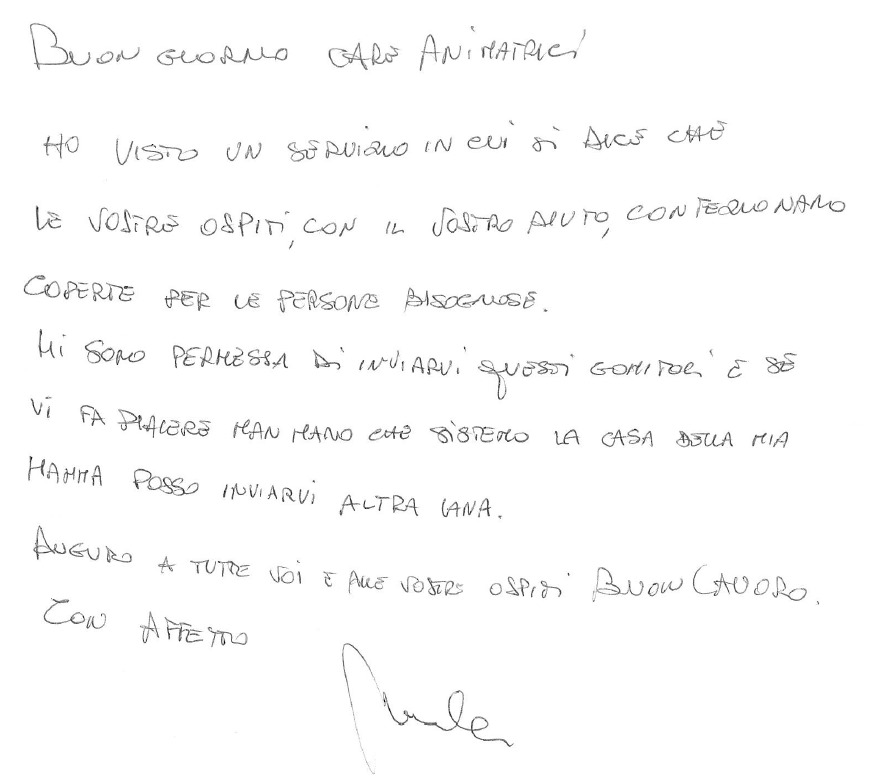 BUON GIORNO CARE ANIMATRICI
HO VISTO UN SERVIZIO IN CUI SI DICE CHE
LE VOSTRE OSPITI, CON IL VOSTRO AIUTO, CONFEZIONANO
COPERTE PER LE PERSONE BISOGNOSE.
MI SONO PERMESSA DI INVIARVI QUESTI GOMITOLI E SE
VI FA PIACERE MAN MANO CHE SISTEMO LA CASA DELLA MIA
MAMMA POSSO INVIARVI ALTRA LANA.
AUGURO A TUTTE VOI E ALLE VOSTRE OSPITI BUON LAVORO.
CON AFFETTO